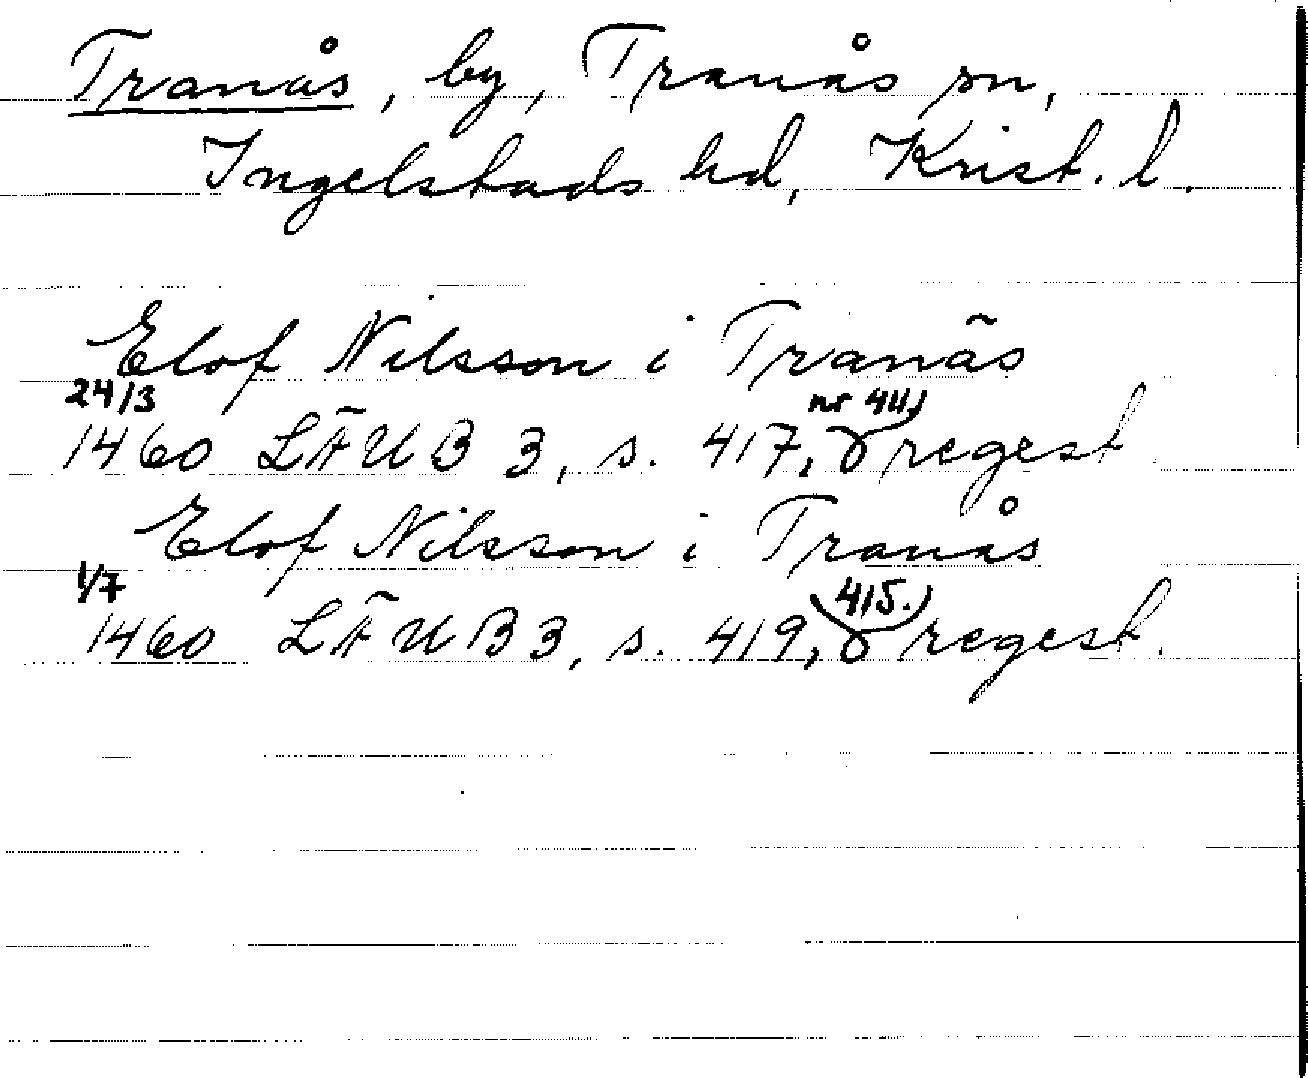 Tranås, by, Tranås sn,
Ingelstads hd, Krist. l.
Elof Nilsson i Tranås
24/3 nr 411,
1460 LÄUB 3, s. 417, regest
Elof Nilsson i Tranås
1/7 415.
1460 LÄUB 3, s. 419, regest.